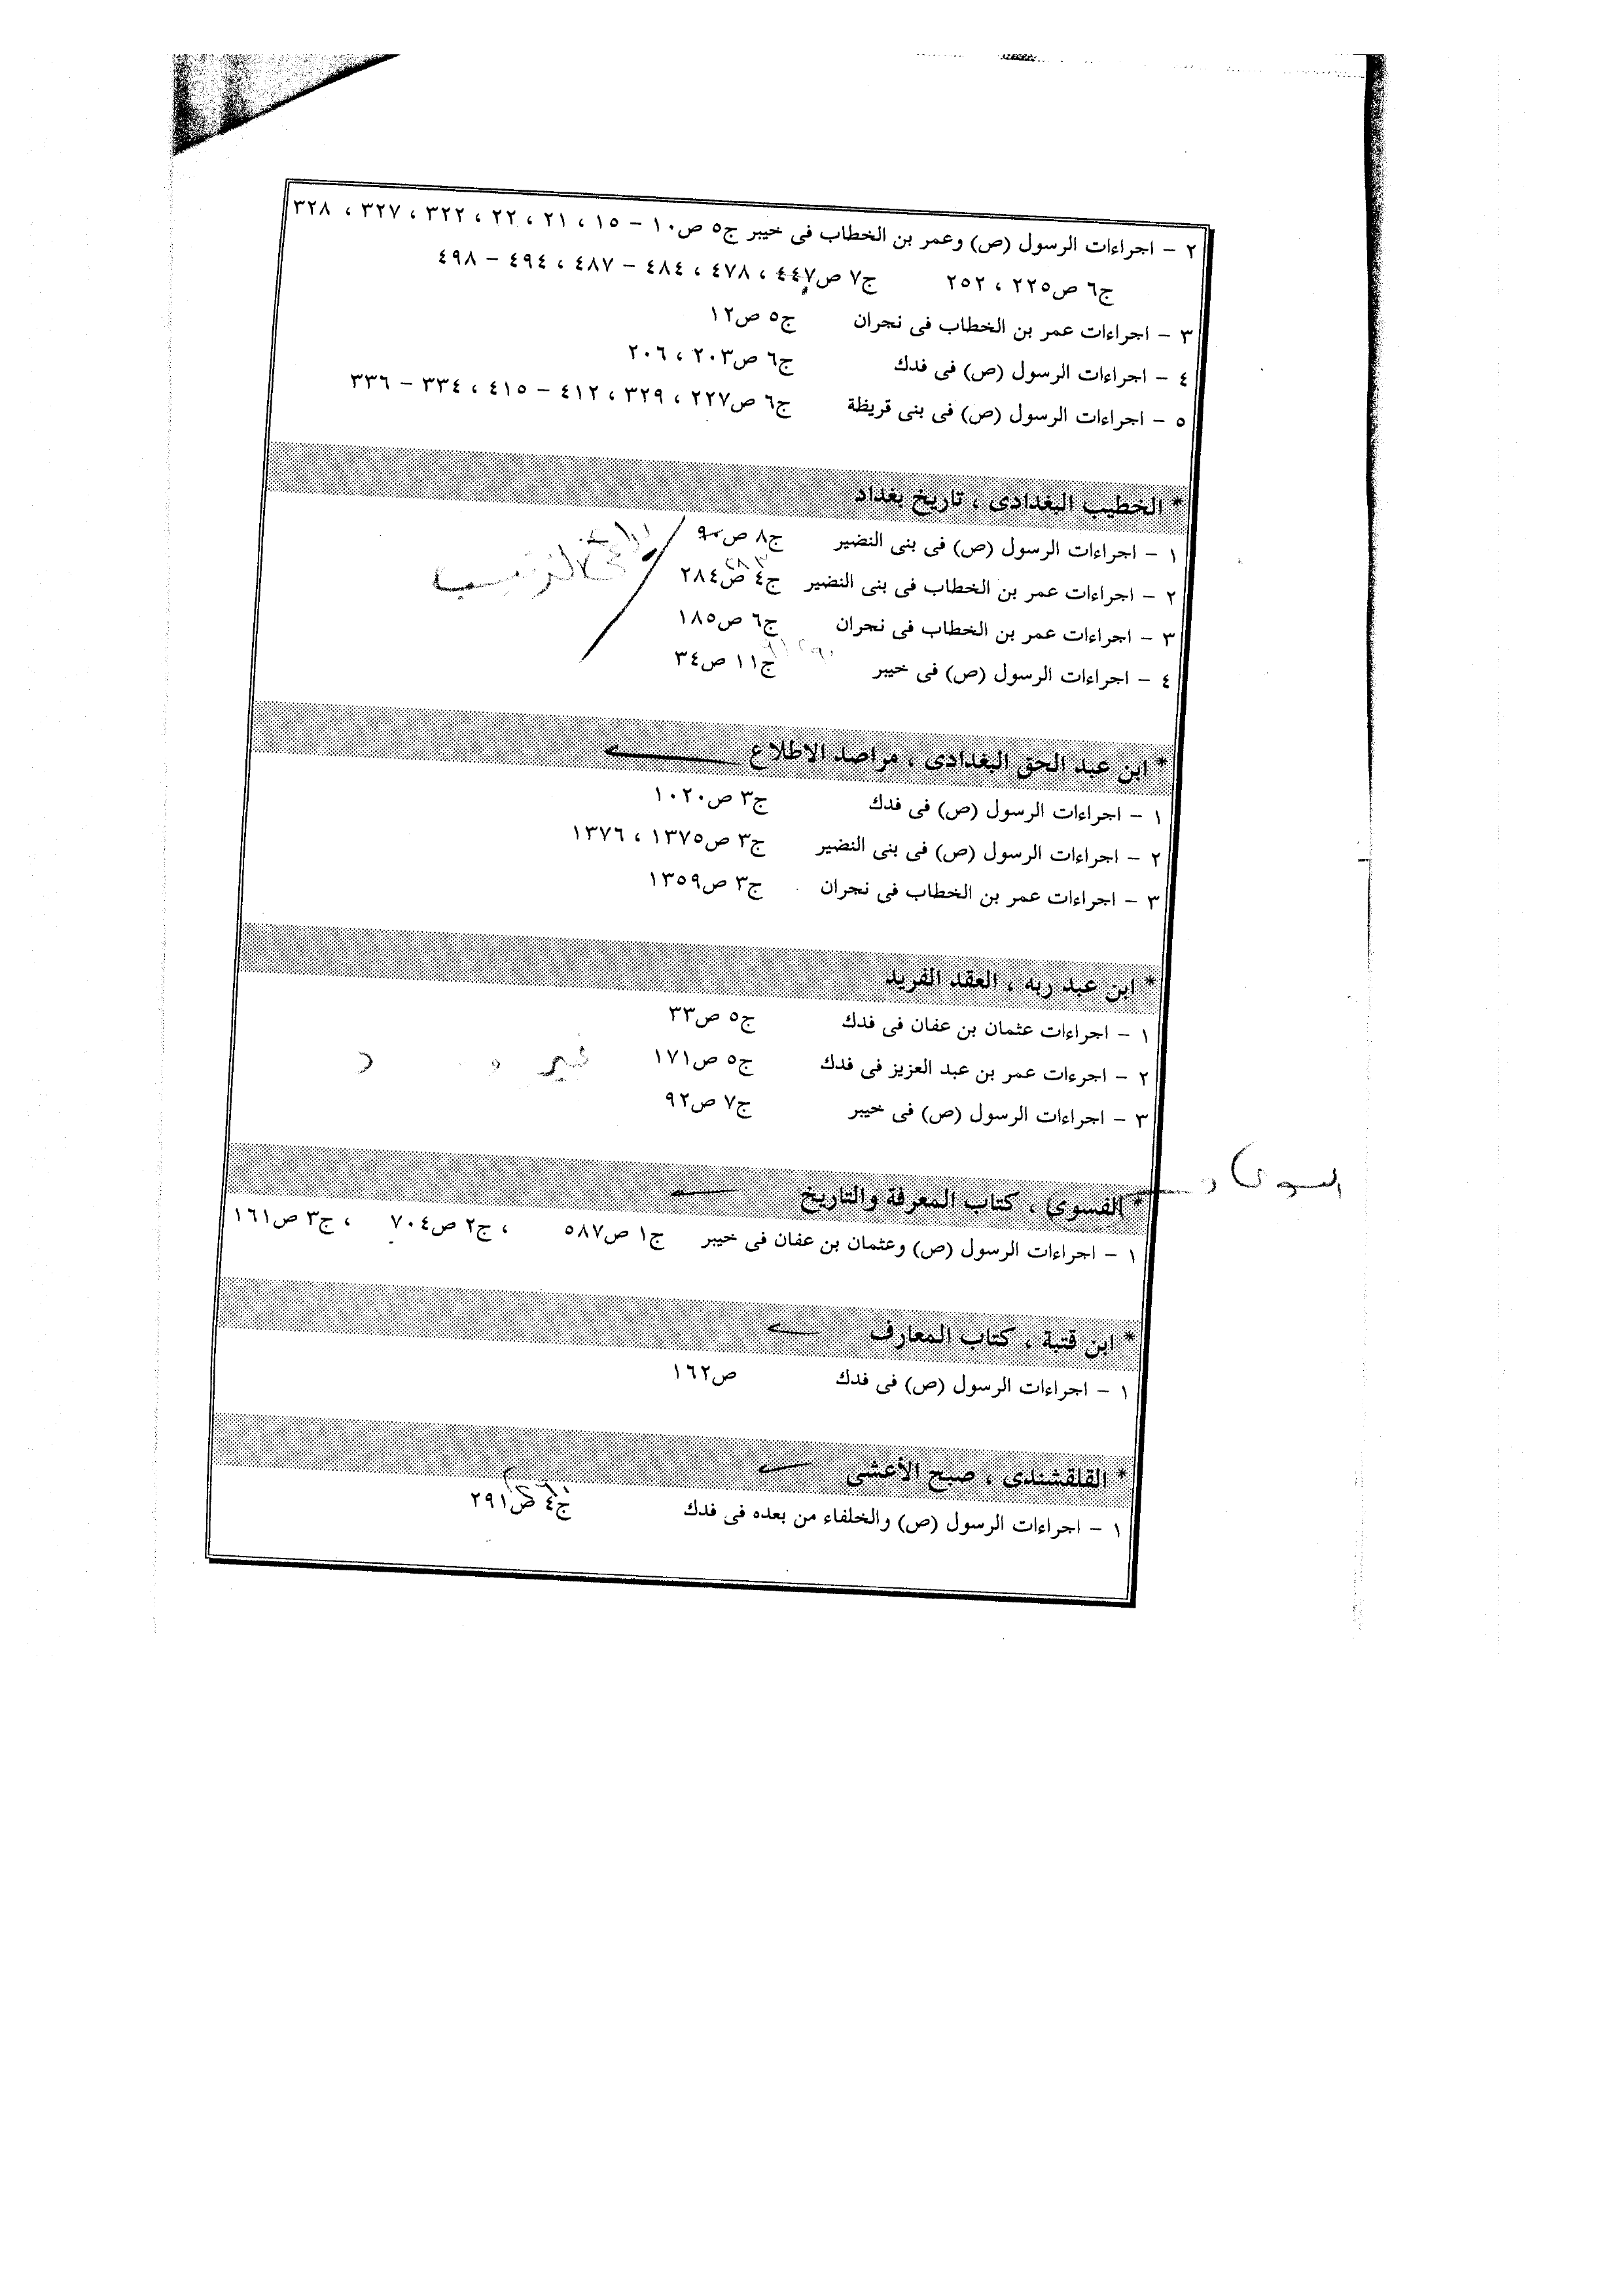 ٢ – اجراءات الرسول (ص) وعمر بن الخطاب فى خيبر ج٥ ص١٠ – ١٥ ، ٢١ ، ٢٢ ، ٣٢٢ ، ٣٢٧ ، ٣٢٨
ج٦ ص٢٢٥ ، ٢٥٢ ج٧ ص٤٤٧ ، ٤٧٨ ، ٤٨٤ – ٤٨٧ ، ٤٩٤ – ٤٩٨
٣ – اجراءات عمر بن الخطاب فى نجران ج٥ ص١٢
٤ – اجراءات الرسول (ص) فى فدك ج٦ ص٢٠٣ ، ٢٠٦
٥ – اجراءات الرسول (ص) فى بنى قريظة ج٦ ص٢٢٧ ، ٣٢٩ ، ٤١٢ – ٤١٥ ، ٣٣٤ – ٣٣٦
* الخطيب البغدادى ، تاريخ بغداد
١ – اجراءات الرسول (ص) فى بنى النضير ج٨ ص٩٠
٢ – اجراءات عمر بن الخطاب فى بنى النضير ج٤ ص٢٨٤
٣ – اجراءات عمر بن الخطاب فى نجران ج٦ ص١٨٥
٤ – اجراءات الرسول (ص) فى خيبر ج١١ ص٣٤
* ابن عبد الحق البغدادى ، مراصد الاطلاع
١ – اجراءات الرسول (ص) فى فدك ج٣ ص١٠٢٠
٢ – اجراءات الرسول (ص) فى بنى النضير ج٣ ص١٣٧٥ ، ١٣٧٦
٣ – اجراءات عمر بن الخطاب فى نجران ج٣ ص١٣٥٩
* ابن عبد ربه ، العقد الفريد
١ – اجراءات عثمان بن عفان فى فدك ج٥ ص٣٣
٢ – اجرءات عمر بن عبد العزيز فى فدك ج٥ ص١٧١
٣ – اجراءات الرسول (ص) فى خيبر ج٧ ص٩٢
* الفسوى ، كتاب المعرفة والتاريخ
١ – اجراءات الرسول (ص) وعثمان بن عفان فى خيبر ج١ ص٥٨٧ ، ج٢ ص٧٠٤ ، ج٣ ص١٦١
* ابن قتبة ، كتاب المعارف
١ – اجراءات الرسول (ص) فى فدك ص١٦٢
* القلقشندى ، صبح الأعشى
١ – اجراءات الرسول (ص) والخلفاء من بعده فى فدك ج٤ ص٢٩١